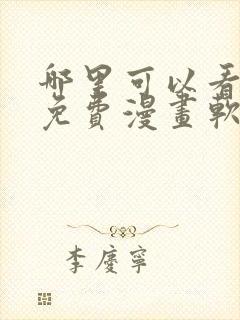 哪里可以看
免費漫畫軟
李慶寧